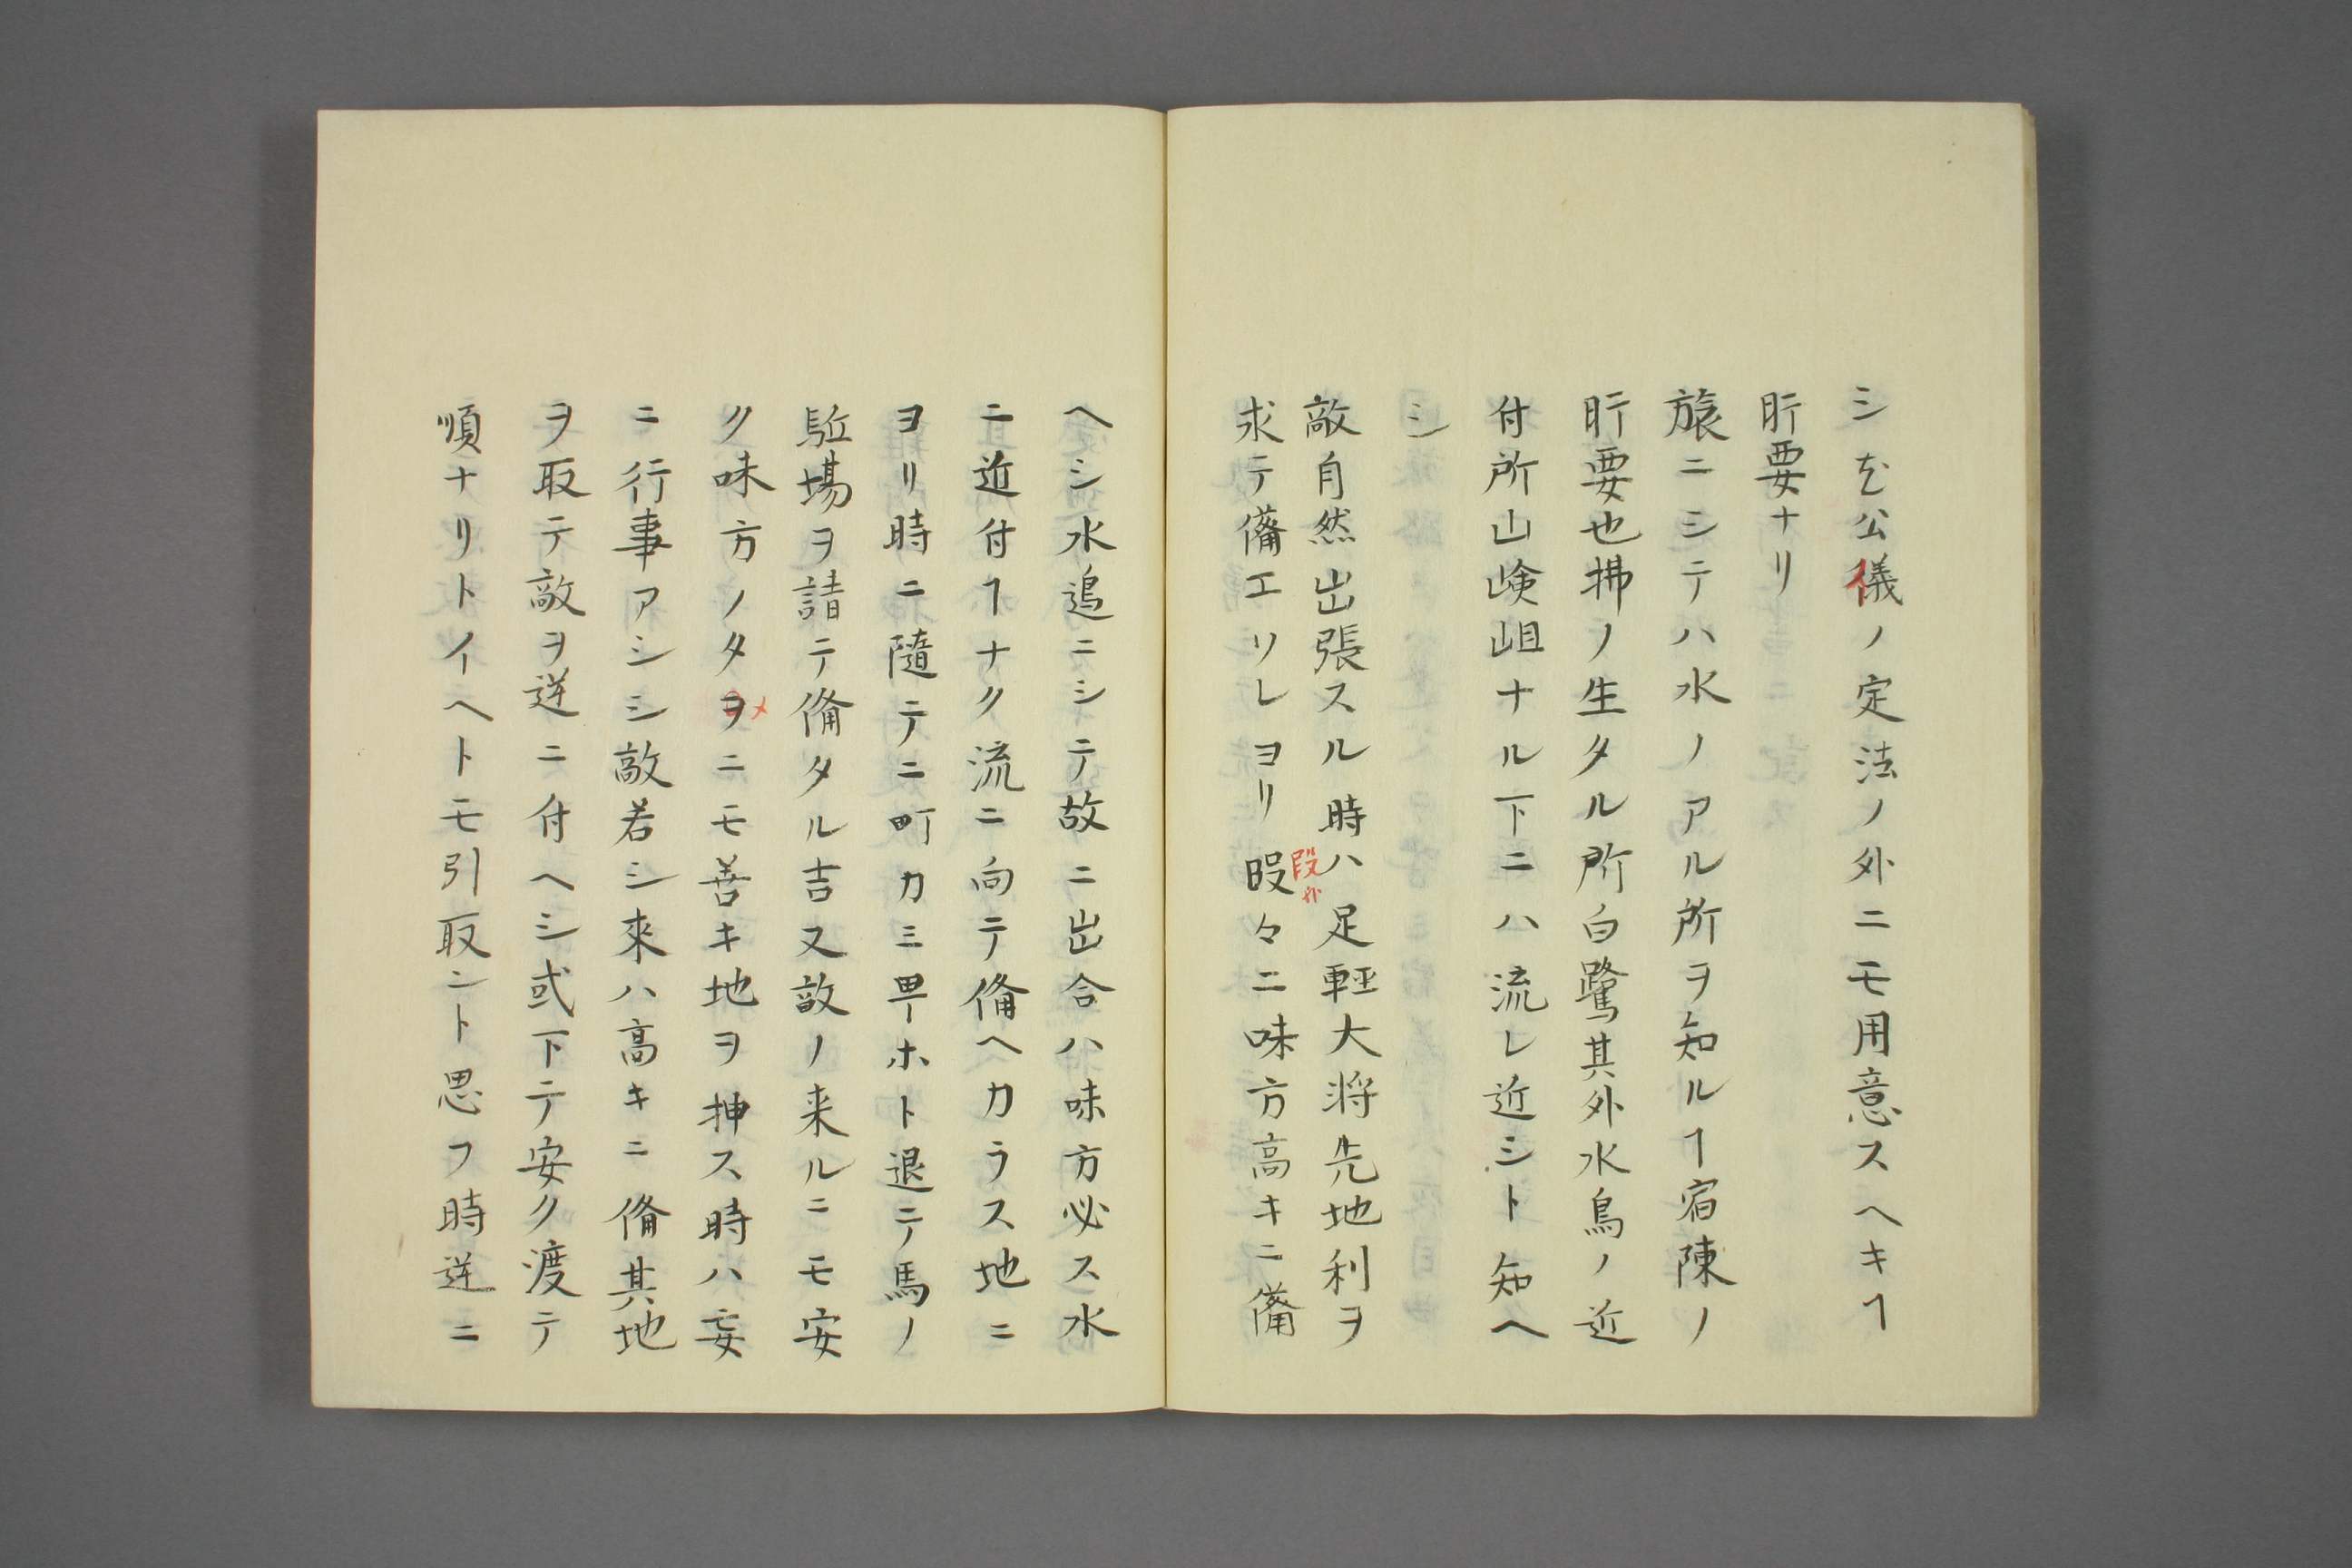 シヒ公儀ノ定法ノ外ニモ用意スヘキヿ
肝要ナリ
旅ニシテハ水ノアル所ヲ知ルヿ宿陳ノ
肝要也拂ノ生タル所白鷺其外水鳥ノ近
付所山峻岨ナル下ニハ流レ近シト知ヘ
シ
敵自然出張スル時ハ足軽大将先地利ヲ
求テ備エリレヨリ暇々ニ味方高キニ備
段カ
ヘシ水追ニシテ故ニ出合ハ味方必ス水
ニ近付ヿナク流ニ向テ備ヘカラス地ニ
ヨリ時ニ隨テニ町カミ畢ホト退テ馬ノ
駈場ヲ請テ備タル吉又敵ノ来ルニモ安
ク味方ノタヲニモ善キ地ヲ押ス時ハ妄
メ
ニ行事アシシ敵若シ來ハ高キニ備其地
ヲ取テ敵ヲ逆ニ付ヘシ或下テ安ク渡テ
順ナリトイヘトモ引取ント思フ時逆ニ